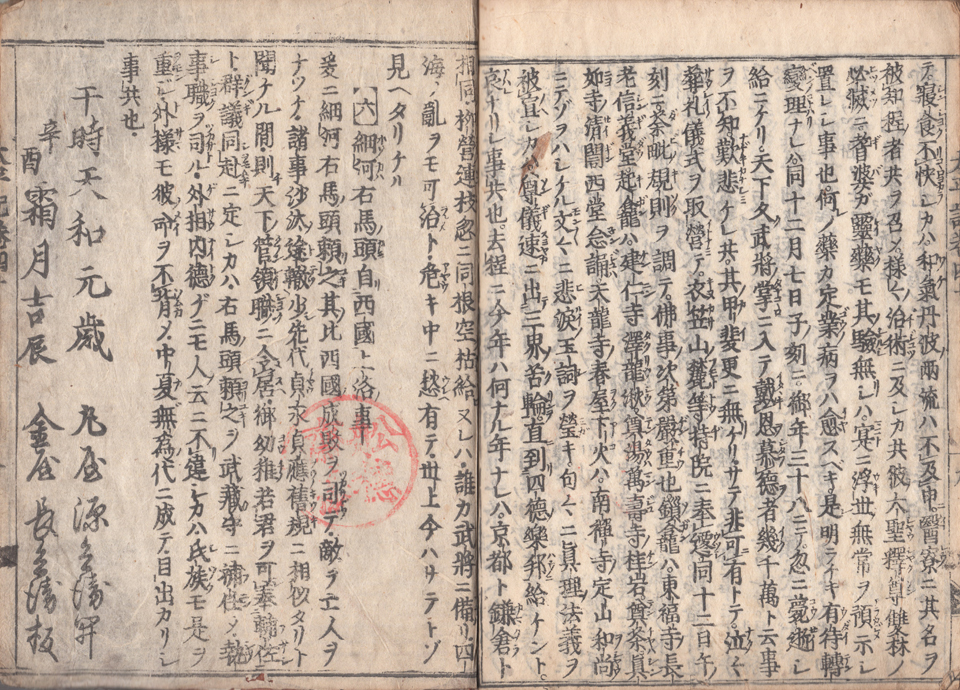 テ寢食不快シカハ和氣丹波兩流ハ不及申醫寮ニ其名ヲ
被知程ノ者共ヲ召メ様々治術ニ及シカ共彼大聖釋尊雙林ノ
必滅ニ耆婆カ靈藥モ其驗無シハ寔ニ浮世無常ヲ預示シ
置レシ事也何ノ藥カ定業ノ病ヲハ愈スベキ是明ラケキ有待轉
變ノ理ナレハ同十二月七日子ノ刻ニ御年三十八ニテ忽ニ薨逝シ
給ニケリ天下久武將ノ掌ニ入テ戴恩慕德者幾千萬ト云事
ヲ不知歎悲ケレ共其甲斐更ニ無ケリサテ非可有トテ泣々
葬礼儀式ヲ取營テ衣笠山ノ麓等持院ニ奉遷同十二日午
刻ニ荼毗ノ規則ヲ調テ佛事次第嚴重也鎖龕ハ東福寺長
老信義堂起龕ハ建仁寺澤龍湫奠湯萬壽寺桂岩奠茶眞
如寺清誾西堂念誦天龍寺春屋下火ハ南禪寺定山和尚
ニテゾヲハシケル文々ニ悲涙玉詞ヲ瑩キ句々ニ眞理法義ヲ
被宣シカハ尊儀速ニ出三界苦輪直到四德樂邦給ケント
哀ナリシ事共也去程ニ今年ハ何ナル年ナレハ京都ト鎌倉ト
相同柳營連枝忽ニ同根空枯給又レハ誰カ武將ニ備リ四
海ノ亂ヲモ可治ト危キ中ニ愁有テ世上今ハサテトゾ
見ヘタリケル
〔六〕細河右馬頭自西國上洛事
爰ニ細河右馬頭頼之其比西國ノ成敗ヲ司テ敵ヲ亡人ヲ
ナツケ諸事沙汰ノ途轍少先代貞永貞應ノ舊規ニ相似タリト
聞ケル間則天下ノ管領職ニ令居御幼稚若君ヲ可奉輔佐
ト群議同赴ニ定シカハ右馬頭頼之ヲ武藏守ニ補任シ執
事職ヲ司ル外相内德ゲニモ人ノ云ニ不違ケレハ氏族モ是ヲ
重シ外様モ彼命ヲ不背メ中夏無爲代ニ成テ目出カリシ
事共也
于時天和元歳
辛酉霜月吉辰
丸屋源兵衛開
金屋長兵衛板